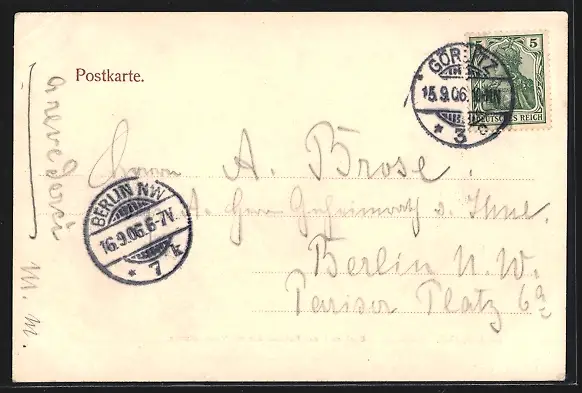 Postkarte.
5 5
DEUTSCHES REICH
GÖRLITZ
15.9.06.
* 3 c
BERLIN NW
16.9.06.6-7V.
* 7 k
Herrn A. Brose.
A. Herrn Geheimrath v. Ihne.
Berlin N. W.
Pariser Platz 6a
M. M.